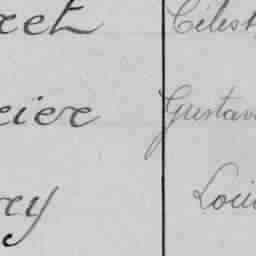 ret Célest
cier Gustav
rey Loui